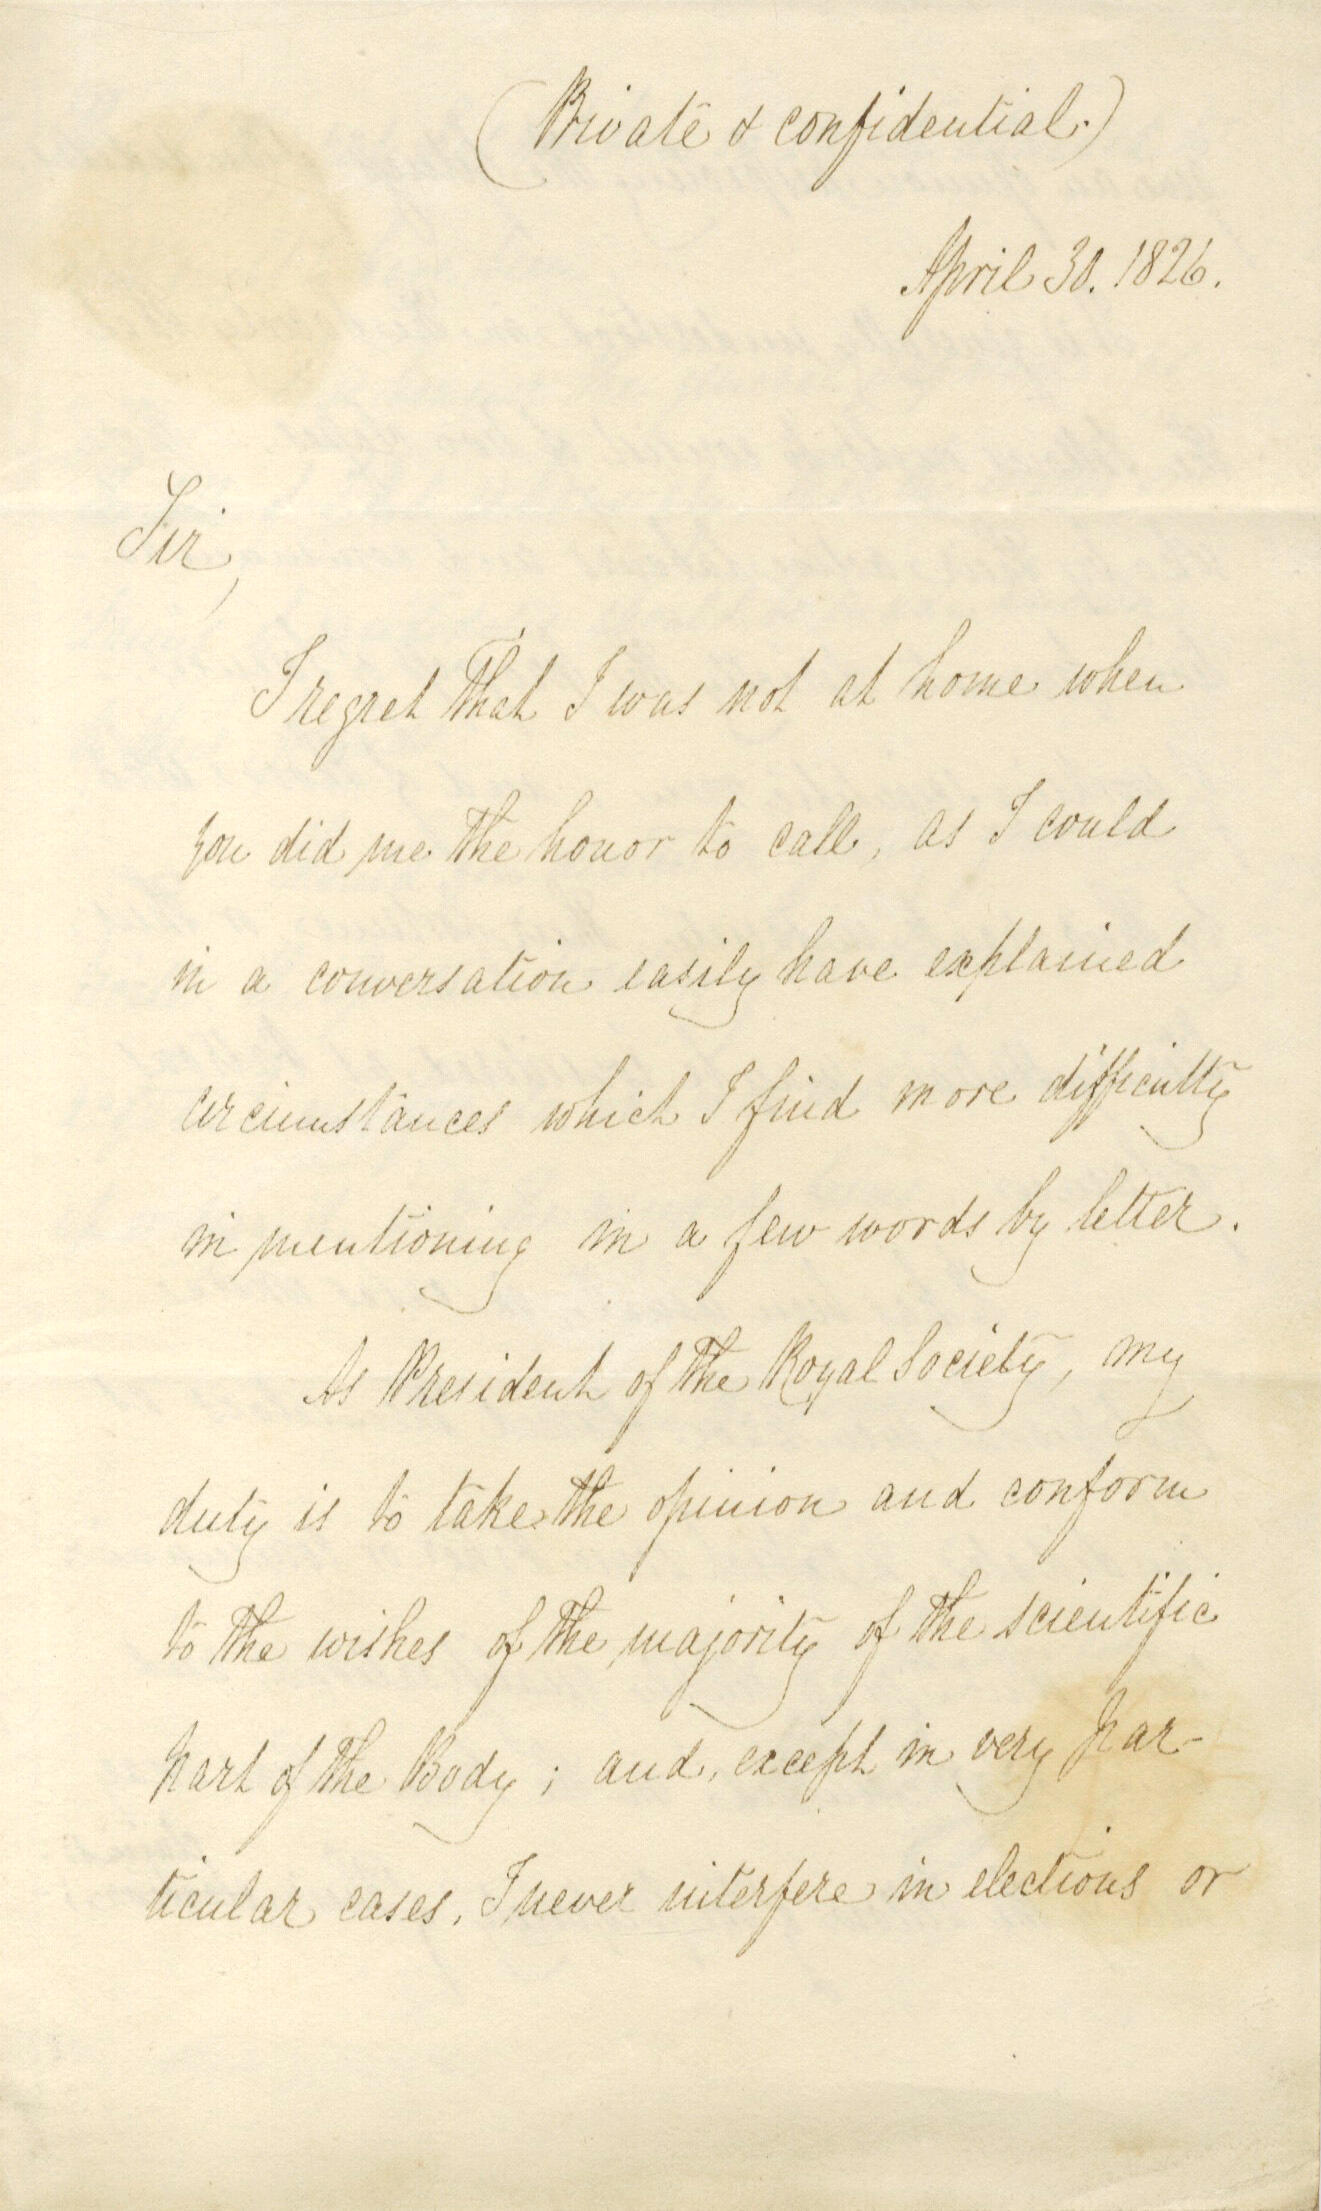 (Private & confidential.)
April 30. 1826.
Sir,
I regret that I was not at home when
you did me the honor to call, as I could
in a conversation easily have explained
circumstances which I find more difficulty
in mentioning in a few words by letter.
As President of the Royal Society, my
duty is to take the opinion and conform
to the wishes of the majority of the scientific
part of the Body; and, except in very par-
ticular cases, I never interfere in elections or